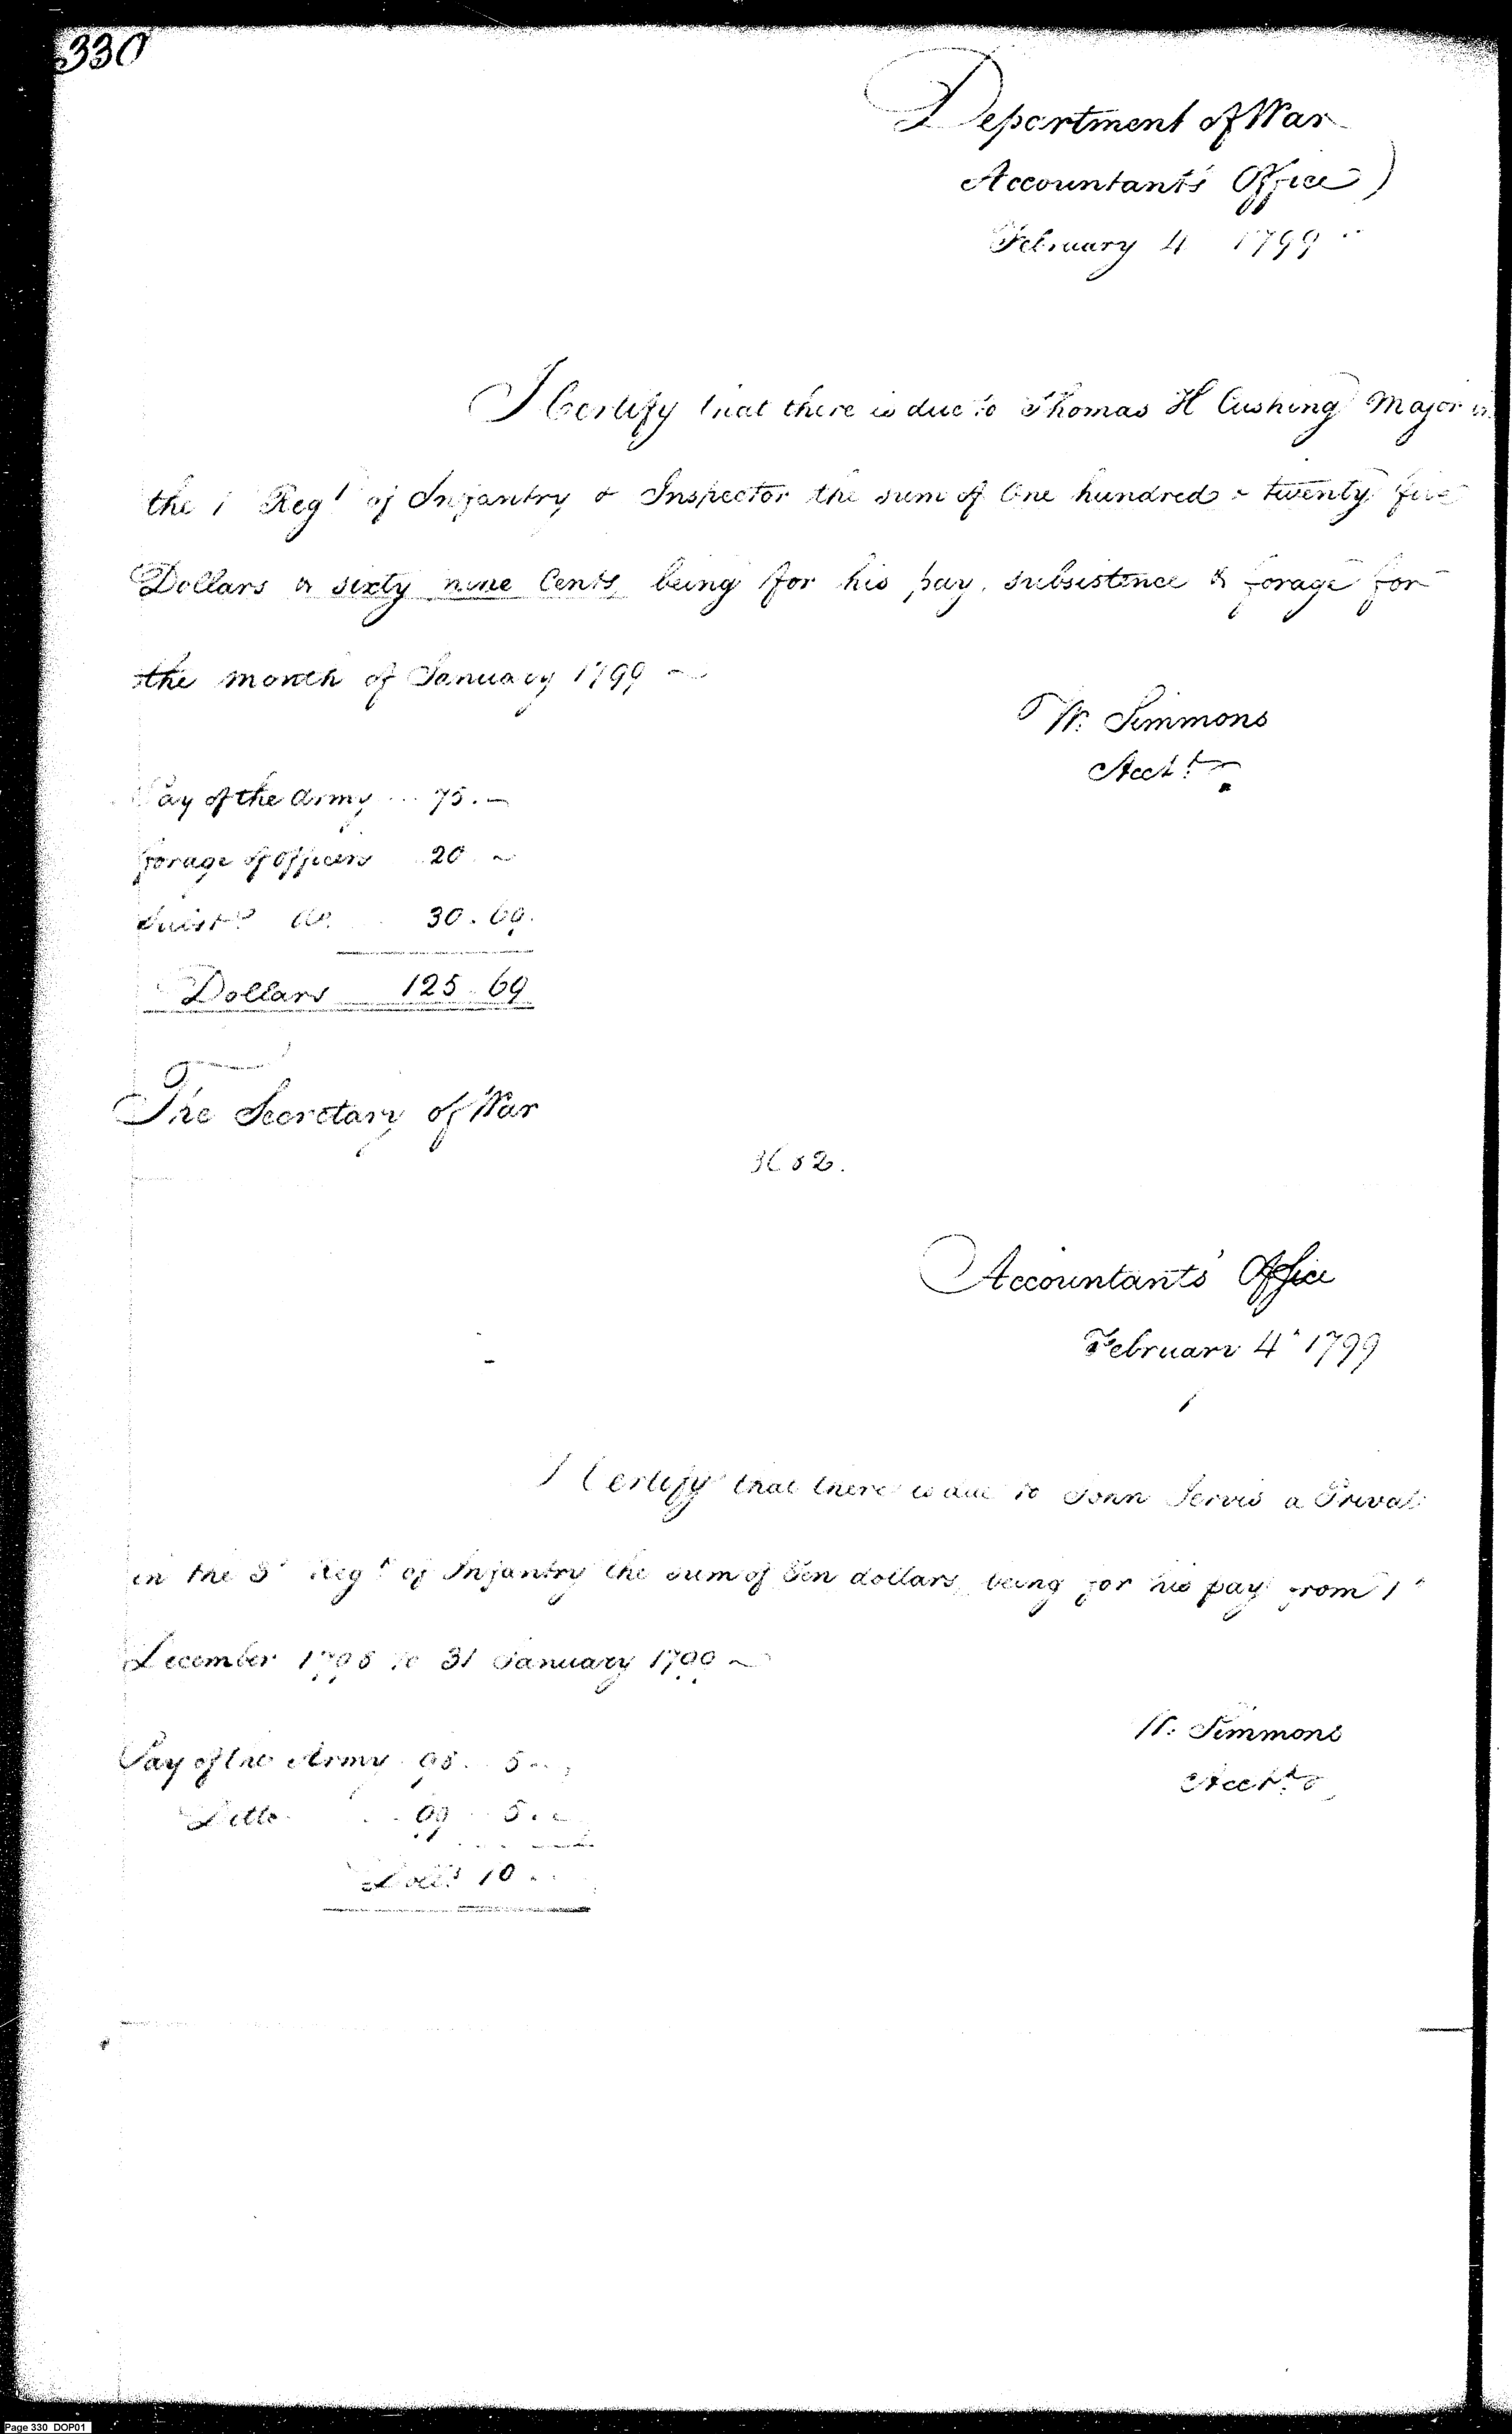 330
Department of War
Accountants Office
February 4 1799
I Certify that there is due to Thomas H Cushing Major in
the 1 Regt of Infantry & Inspector the sum of One hundred & twenty five
Dollars & sixty nine Cents being for his pay, subsistence & forage for
the month of January 1799
W. Simmons
Acctt
Pay of the Army 75.
forage of officers 20
Subst do. 30.69.
Dollars 125.69
The Secretary of War
Accountants' Office
February 4 1799
I Certify that there is due to John Servis a Privat
in the 3d Regt of Infantry the sum of Ten dollars being for his pay from 1
December 1798 to 31 January 1799
W. Simmons
Acctt
Pay of the Army 98 5
Ditto 99 5
Dolls 10
Page 330 DOP01